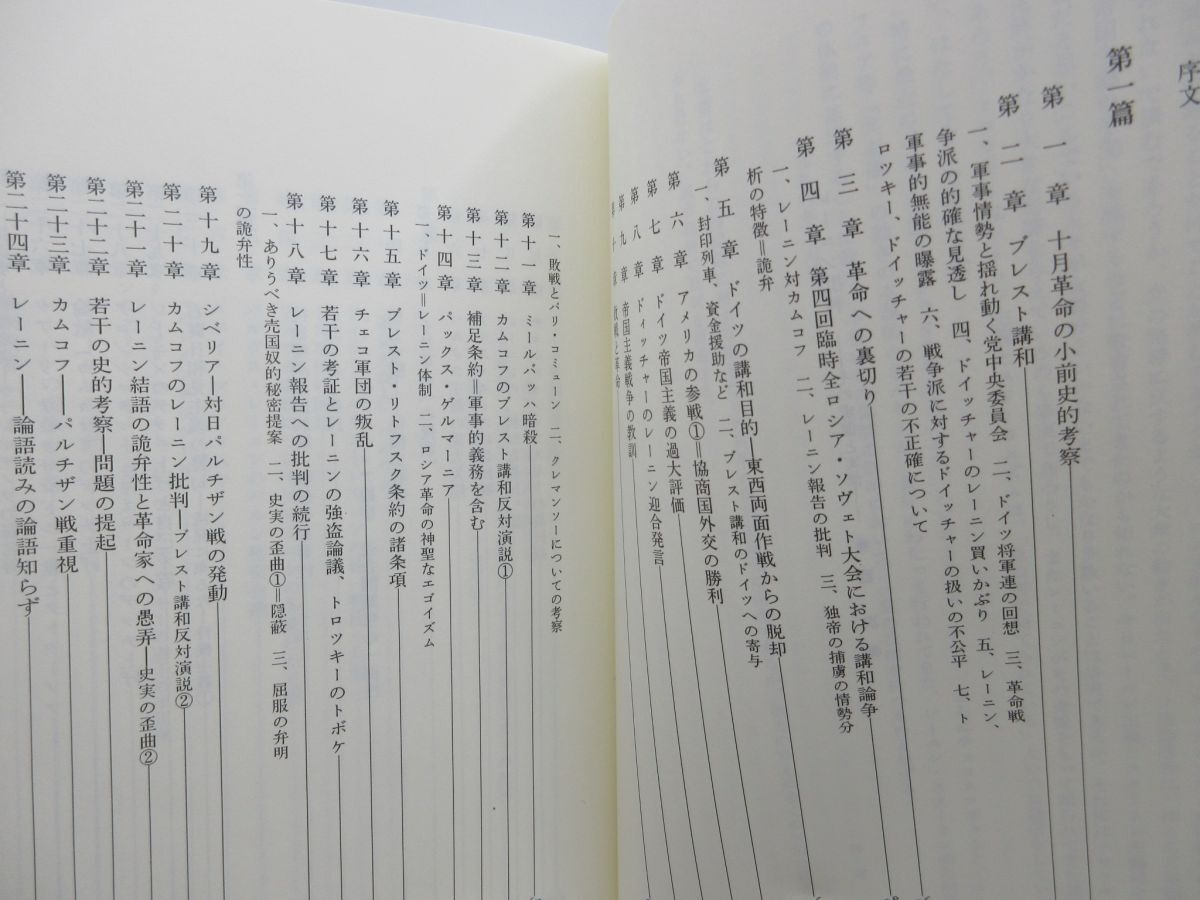 序文
第一篇
第一章 十月革命の小前史的考察
第二章 ブレスト講和
一、軍事情勢と揺れ動く党中央委員会 二、ドイツ将軍連の回想 三、革命戦
争派の的確な見透し 四、ドイッチャーのレーニン買いかぶり 五、レーニン、
軍事的無能の曝露 六、戦争派に対するドイッチャーの扱いの不公平 七、ト
ロツキー、ドイッチャーの若干の不正確について
第三章 革命への裏切り
第四章 第四回臨時全ロシア・ソヴェト大会における講和論争
一、レーニン対カムコフ 二、レーニン報告の批判 三、独帝の捕虜の情勢分
析の特徴=詭弁
第五章 ドイツの講和目的―東西両面作戦からの脱却
一、封印列車、資金援助など 二、ブレスト講和のドイツへの寄与
第六章 アメリカの参戦①=協商国外交の勝利
第七章 ドイツ帝国主義の過大評価
第八章 ドイッチャーのレーニン迎合発言
第九章 帝国主義戦争の教訓
章 敗戦と革命
一、敗戦とパリ・コミューン 二、クレマンソーについての考察
第十一章 ミールバッハ暗殺
第十二章 カムコフのブレスト講和反対演説①
第十三章 補足条約=軍事的義務を含む
第十四章 パックス・ゲルマーニア
一、ドイツ=レーニン体制 二、ロシア革命の神聖なエゴイズム
第十五章 ブレスト・リトフスク条約の諸条項
第十六章 チェコ軍団の叛乱
第十七章 若干の考証とレーニンの強盗論議、トロツキーのトボケ
第十八章 レーニン報告への批判の続行
一、ありうべき売国奴的秘密提案 二、史実の歪曲①=隠蔽 三、屈服の弁明
の詭弁性
第十九章 シベリアー対日パルチザン戦の発動
第二十章 カムコフのレーニン批判―ブレスト講和反対演説②
第二十一章 レーニン結語の詭弁性と革命家への愚弄―史実の歪曲②
第二十二章 若干の史的考察―問題の提起
第二十三章 カムコフ――パルチザン戦重視
第二十四章 レーニン――論語読みの論語知らず